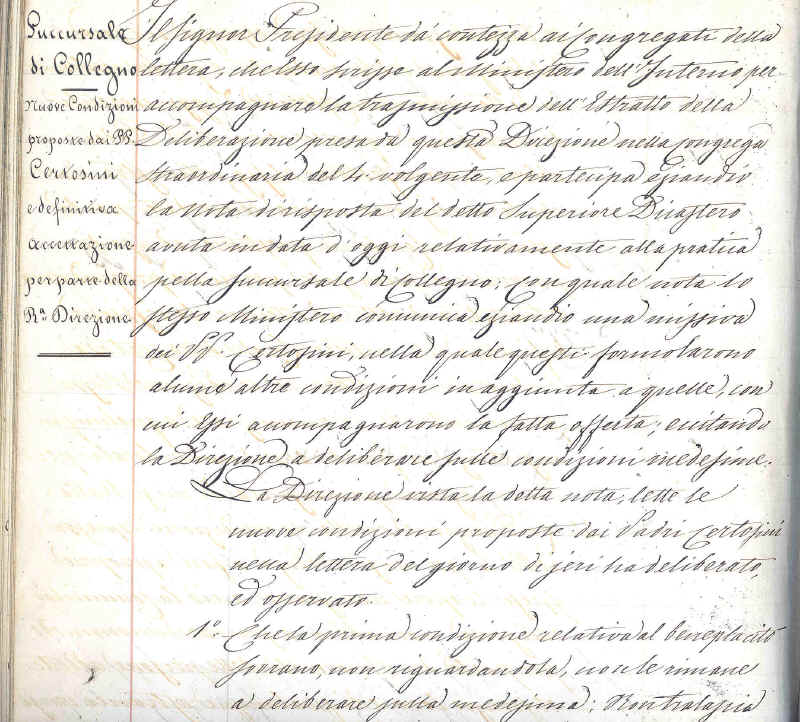 Succursale
di Collegno
Nuove Condizioni
proposte dai PP.
Certosini
e definitiva
accettazione
per parte della
Ra. Direzione
Il Signor Presidente dà contezza ai Congregati della
lettera, che Esso scrisse al Ministero dell'Interno per
accompagnare la trasmissione dell'Estratto della
Deliberazione presa da questa Direzione nella congrega
straordinaria del 4. volgente, e partecipa eziandio
la nota di risposta del detto Superiore Dicastero
avuta in data d'oggi relativamente alla pratica
pella Succursale di Collegno; con quale nota lo
stesso Ministero comunica eziandio una missiva
dei PP. Certosini, nella quale questi formolarono
alcune altre condizioni in aggiunta a quelle, con
cui Essi accompagnarono la fatta offerta; eccitando
la Direzione a deliberare sulle condizioni medesime.
La Direzione vista la detta nota, lette le
nuove condizioni proposte dai Padri Certosini
nella lettera del giorno di jeri ha deliberato,
ed osservato.
1o. Che la prima condizione relativa al beneplacito
sovrano, non riguardandola, non le rimane
a deliberare sulla medesima;